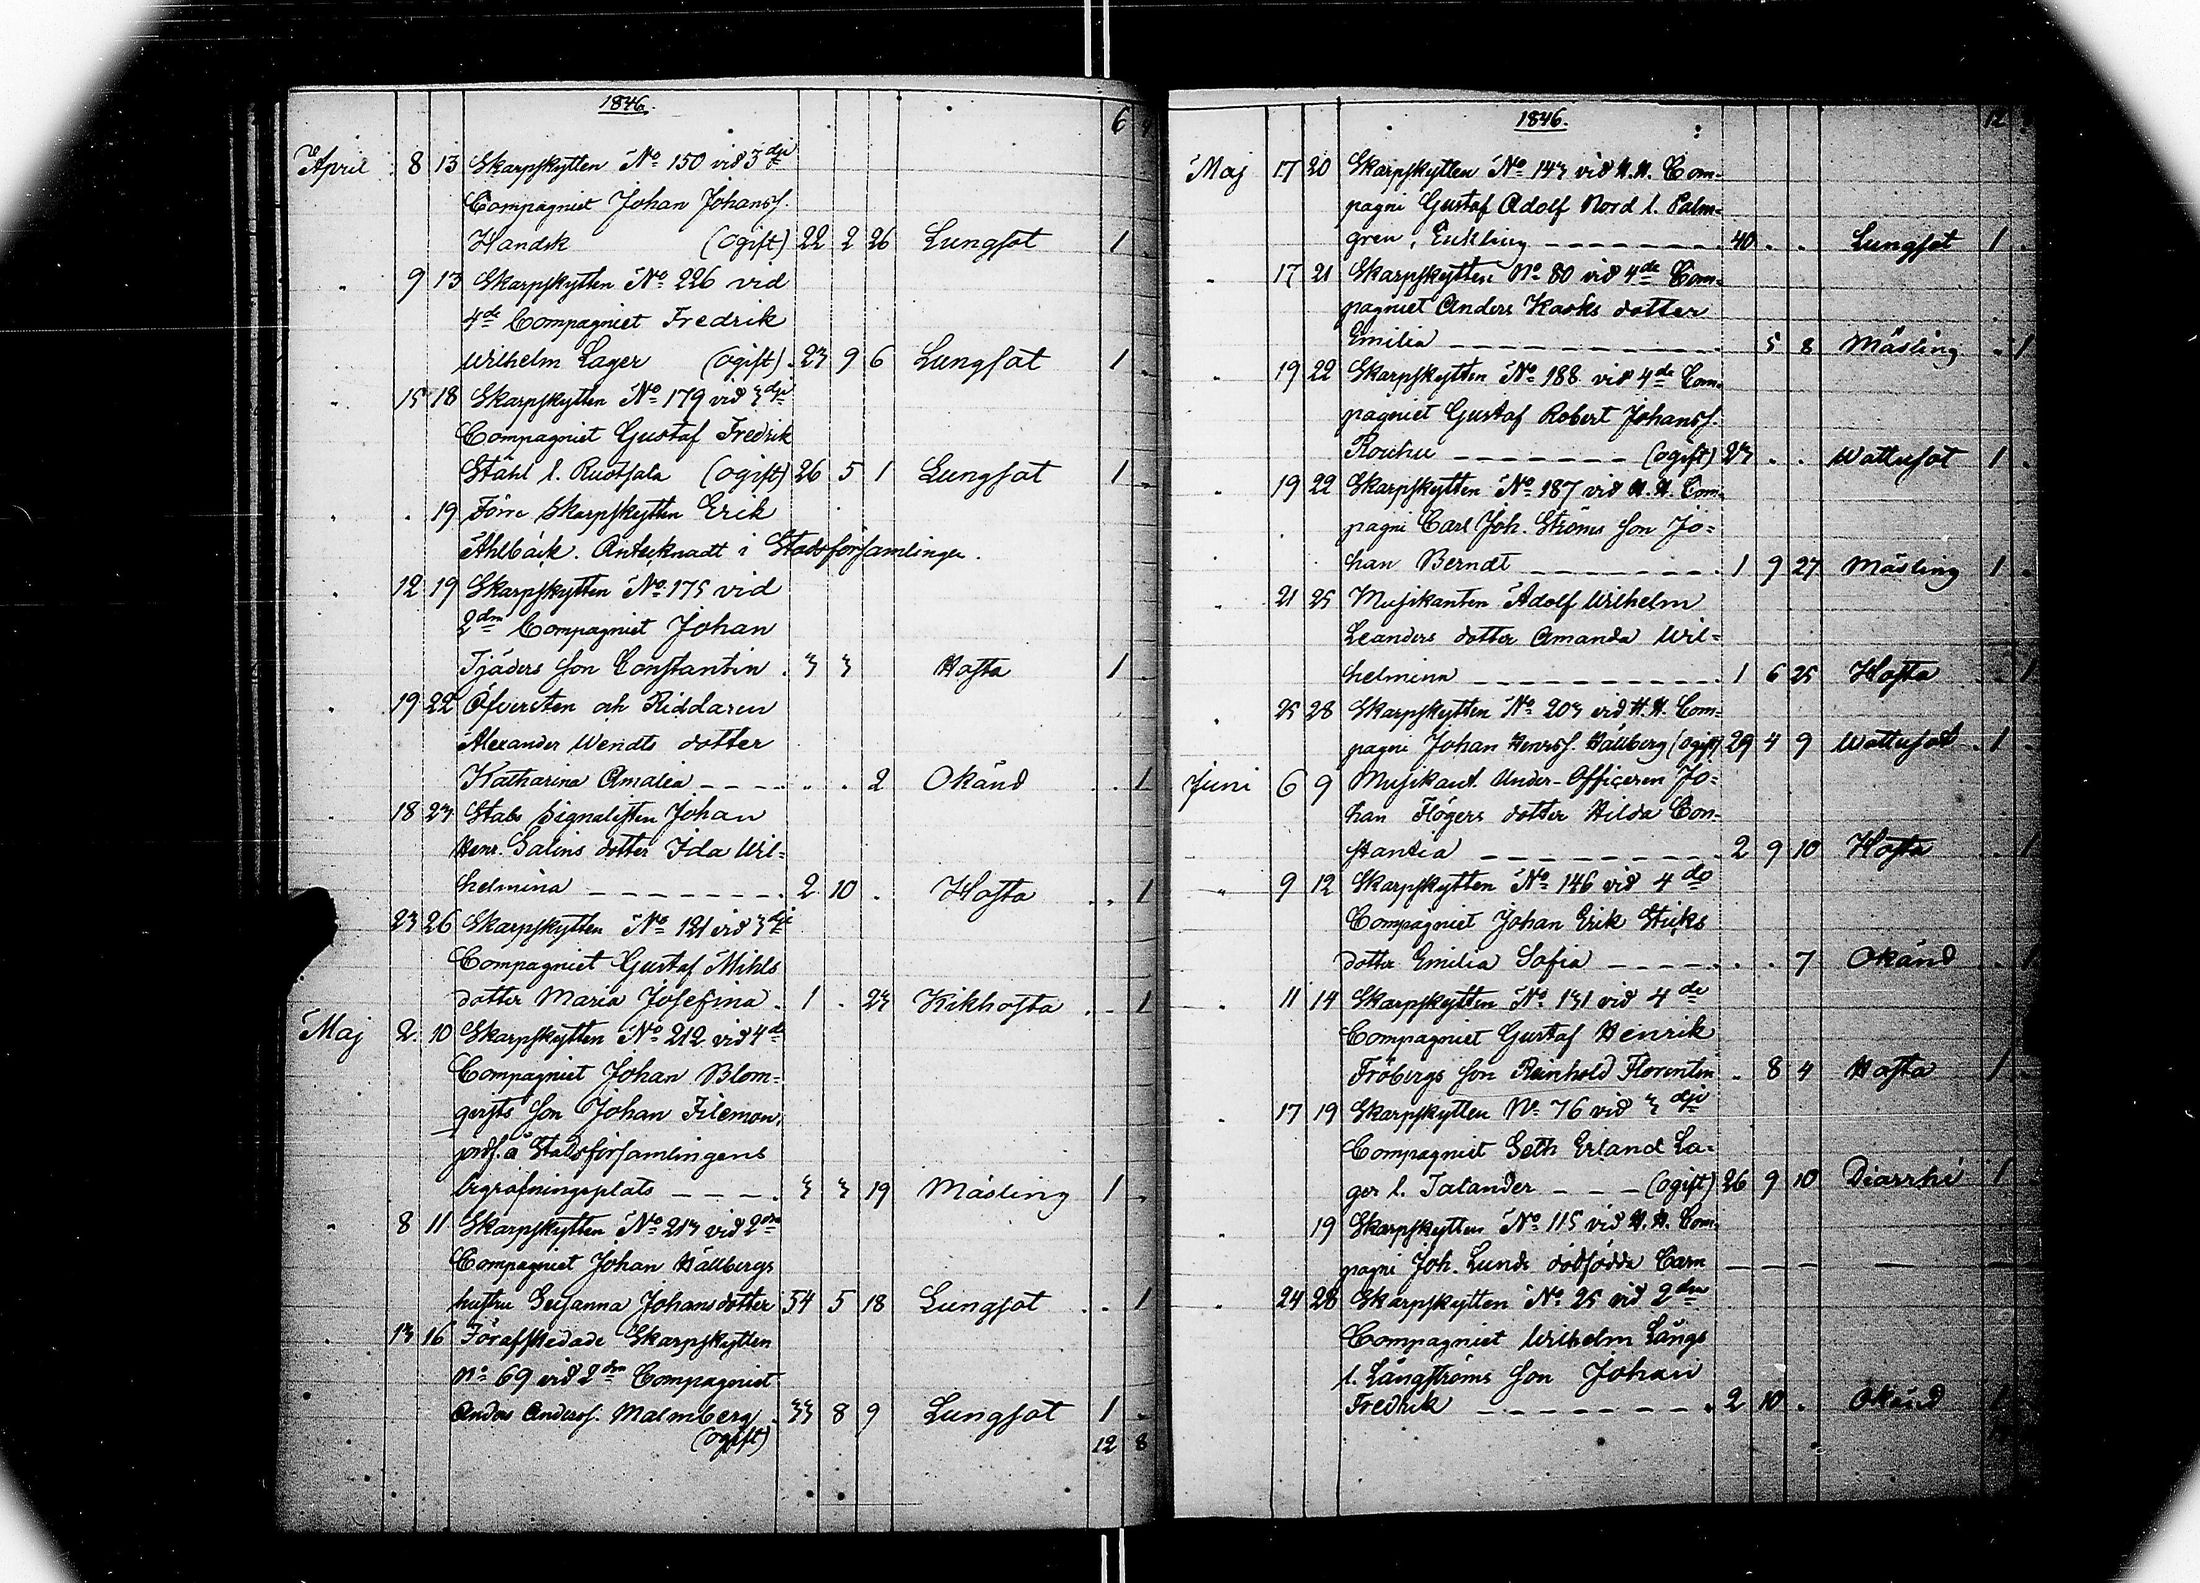 1846.
6
April 8 13 Skarpskytten No 150 vid 3dje
Compagniet Johan Johanss.
Handsk (Ogift) 22 2 26 Lungsot 1 .
" 9 13 Skarpskytten No 226 vid
4de Compagniet Fredrik
Wilhelm Lager (ogift) . 23 9 6 Lungsot 1 .
" 15 18 Skarpskytten No 179 vid 3dje
Compagniet Gustaf Fredrik
Ståhl l. Ruotsala (Ogift) 26 5 1 Lungsot 1 .
" . 19 Förre Skarpskytten Erik
Ahlbäck. Antecknadt i Stadsförsamlingen.
" 12 19 Skarpskytten No 175 vid
2dra Compagniet Johan
Tjäders son Constantin . 3 3 Hosta 1 .
" 19 22 Öfversten och Riddaren
Alexander Wendts dotter
Katharina Amalia - - - - . . 2 Okänd . 1
" 18 23 Stabs Signalisten Johan
Henr. Salins dotter Ida Wil-
helmina - - - - - - - . 2 10 . Hosta . 1
23 26 Skarpskytten No 121 vid 3dje
Compagniet Gustaf Mihls
dotter Maria Josefina . 1 . 23 Kikhosta . 1
Maj 2 10 Skarpskytten No 212 vid 4de
Compagniet Johan Blom-
qvists son Johan Filemon,
jords. å Stadsförsamlingens
begrafningsplats - - - . 3 3 19 Mäsling 1 .
" 8 11 Skarpskytten No 213 vid 2dra
Compagniet Johan Hällbergs
hustru Susanna Johansdotter 54 5 18 Lungsot . 1
13 16 Förafskedade Skarpskytten
No 69 vid 2dra Compagniet
Anders Anderss. Malmberg . 33 8 9 Lungsot 1 .
(ogift)
12 8
1846.
12
Maj 17 20 Skarpskytten No 143 vid H.H. Com-
pagni Gustaf Adolf Nord l. Palm-
gren, Enkling - - - - - - - . 40 . . Lungsot 1 .
" 17 21 Skarpskytten No 80 vid 4de Com-
pagniet Anders Kasks dotter
Emilia - - - - - - - - - - - 5 8 Mäsling . 1
" 19 22 Skarpskytten No 188 vid 4de Com-
pagniet Gustaf Robert Johanss.
Rouhu - - - - - - - (ogift) 23 . . Wattusot 1 .
" 19 22 Skarpskytten No 187 vid H.H. Com-
pagni Carl Joh. Ströms son Jo-
han Berndt - - - - - - - - . 1 9 27 Mäsling 1 .
" 21 25 Musikanten Adolf Wilhelm
Leanders dotter Amanda Wil-
helmina - - - - - - - - - - . 1 6 25 Hosta . 1
" 25 28 Skarpskytten No 203 vid H.H. Com-
pagni Johan Henrss. Hällberg (Ogift) 29 4 9 Wattusot . 1 .
Juni 6 9 Musikant Under-Officeren Jo-
han Högers dotter Hilda Con-
stantia - - - - - - - - - . 2 9 10 Hosta . 1
" 9 12 Skarpskytten No 146 vid 4de
Compagniet Johan Erik Sticks
dotter Emilia Sofia - - - - . . . 7 Okänd . 1
" 11 14 Skarpskytten No 131 vid 4de
Compagniet Gustaf Henrik
Fröbergs son Reinhold Florentin . 8 4 Hosta 1 .
" 17 19 Skarpskytten No 76 vid 3dje
Compagniet Seth Erland La-
ger l. Talander - - - (Ogift) 26 9 10 Diarrhé 1
" 19 Skarpskytten No 115 vid H.H. Com-
pagni Joh. Lunds dödfödda Barn - - - - - -
" 24 28 Skarpskytten No 25 vid 2dra
Compagniet Wilhelm Långs
l. Långströms son Johan
Fredrik - - - - - - - - . 2 10 . Okänd 1